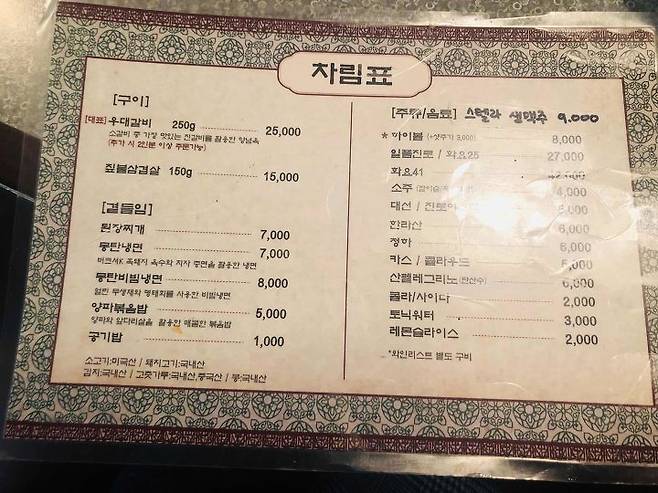 차림표
[구이]
[대표] 우대갈비 250g 25,000
소갈비 중 가장 맛있는 진갈비를 활용한 양념육
(추가 시 2인분 이상 주문가능)
짚불삼겹살 150g 15,000
[곁들임]
된장찌개 7,000
몽탄냉면 7,000
버크셔K 흑돼지 육수와 지자 중면을 활용한 냉면
몽탄비빔냉면 8,000
얼린 무생채와 명태회를 사용한 비빔냉면
양파볶음밥 5,000
양파와 앞다리살을 활용한 매콤한 볶음밥
공기밥 1,000
소고기:미국산 / 돼지고기:국내산
김치:국내산 / 고춧가루:국내산,중국산 / 콩:국내산
[주류/음료] 스텔라 생맥주 9.000
* 하이볼 (+샷추가 3,000) 8,000
일품진로 / 화요25 27,000
화요41
소주 4,000
대선 / 진로
한라산 6,000
정하 6,000
카스 / 클라우드 5,000
산펠레그리노 (탄산수) 6,000
콜라/사이다 2,000
토닉워터 3,000
레몬슬라이스 2,000
*와인리스트 별도 구비